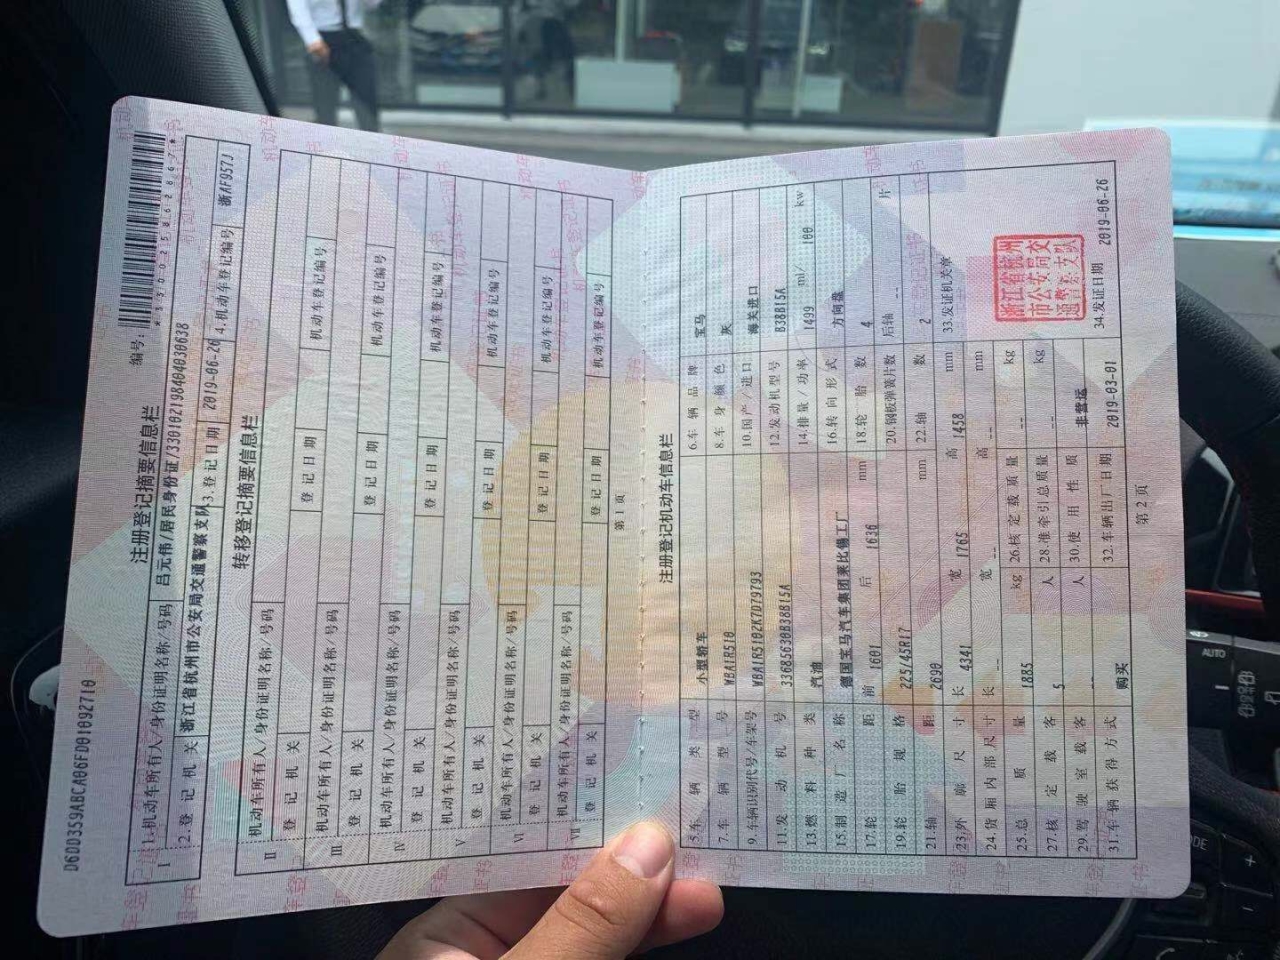 D6DD359ABCA06FD01092710
注册登记摘要信息栏
编号:
1.机动车所有人/身份证明名称/号码 吕元伟/居民身份证/330102198404030638
2.登记机关 浙江省杭州市公安局交通警察支队 3.登记日期 2019-06-26 4.机动车登记编号 浙AF957J
转移登记摘要信息栏
机动车所有人/身份证明名称/号码
登记机关 登记日期 机动车登记编号
机动车所有人/身份证明名称/号码
登记机关 登记日期 机动车登记编号
机动车所有人/身份证明名称/号码
登记机关 登记日期 机动车登记编号
机动车所有人/身份证明名称/号码
登记机关 登记日期 机动车登记编号
机动车所有人/身份证明名称/号码
登记机关 登记日期 机动车登记编号
机动车所有人/身份证明名称/号码
登记机关 登记日期 机动车登记编号
第1页
注册登记机动车信息栏
5.车辆类型 小型轿车 6.车辆品牌 宝马
7.车辆型号 WBA1R510 8.车身颜色 灰
9.车辆识别代号/车架号 WBA1R5102K7D79793 10.国产/进口 海关进口
11.发动机号 33685630B38B15A 12.发动机型号 B38B15A
13.燃料种类 汽油 14.排量/功率 1499 ml/ 100 kw
15.制造厂名称 德国宝马汽车集团莱比锡工厂 16.转向形式 方向盘
17.轮距 前 1601 后 1636 mm 18.轮胎数 4
19.轮胎规格 225/45R17 20.钢板弹簧片数 后轴 -- 片
21.轴距 2690 mm 22.轴数 2
23.外廓尺寸 长 4341 宽 1765 高 1458 mm
33.发证机关章
24.货厢内部尺寸 长 -- 宽 -- 高 -- mm
浙江省杭州市公安局交通警察支队
25.总质量 1885 kg 26.核定载质量 -- kg
27.核定载客 5 人 28.准牵引总质量 -- kg
29.驾驶室载客 -- 人 30.使用性质 非营运
31.车辆获得方式 购买 32.车辆出厂日期 2019-03-01 34.发证日期 2019-06-26
第2页
AUTO